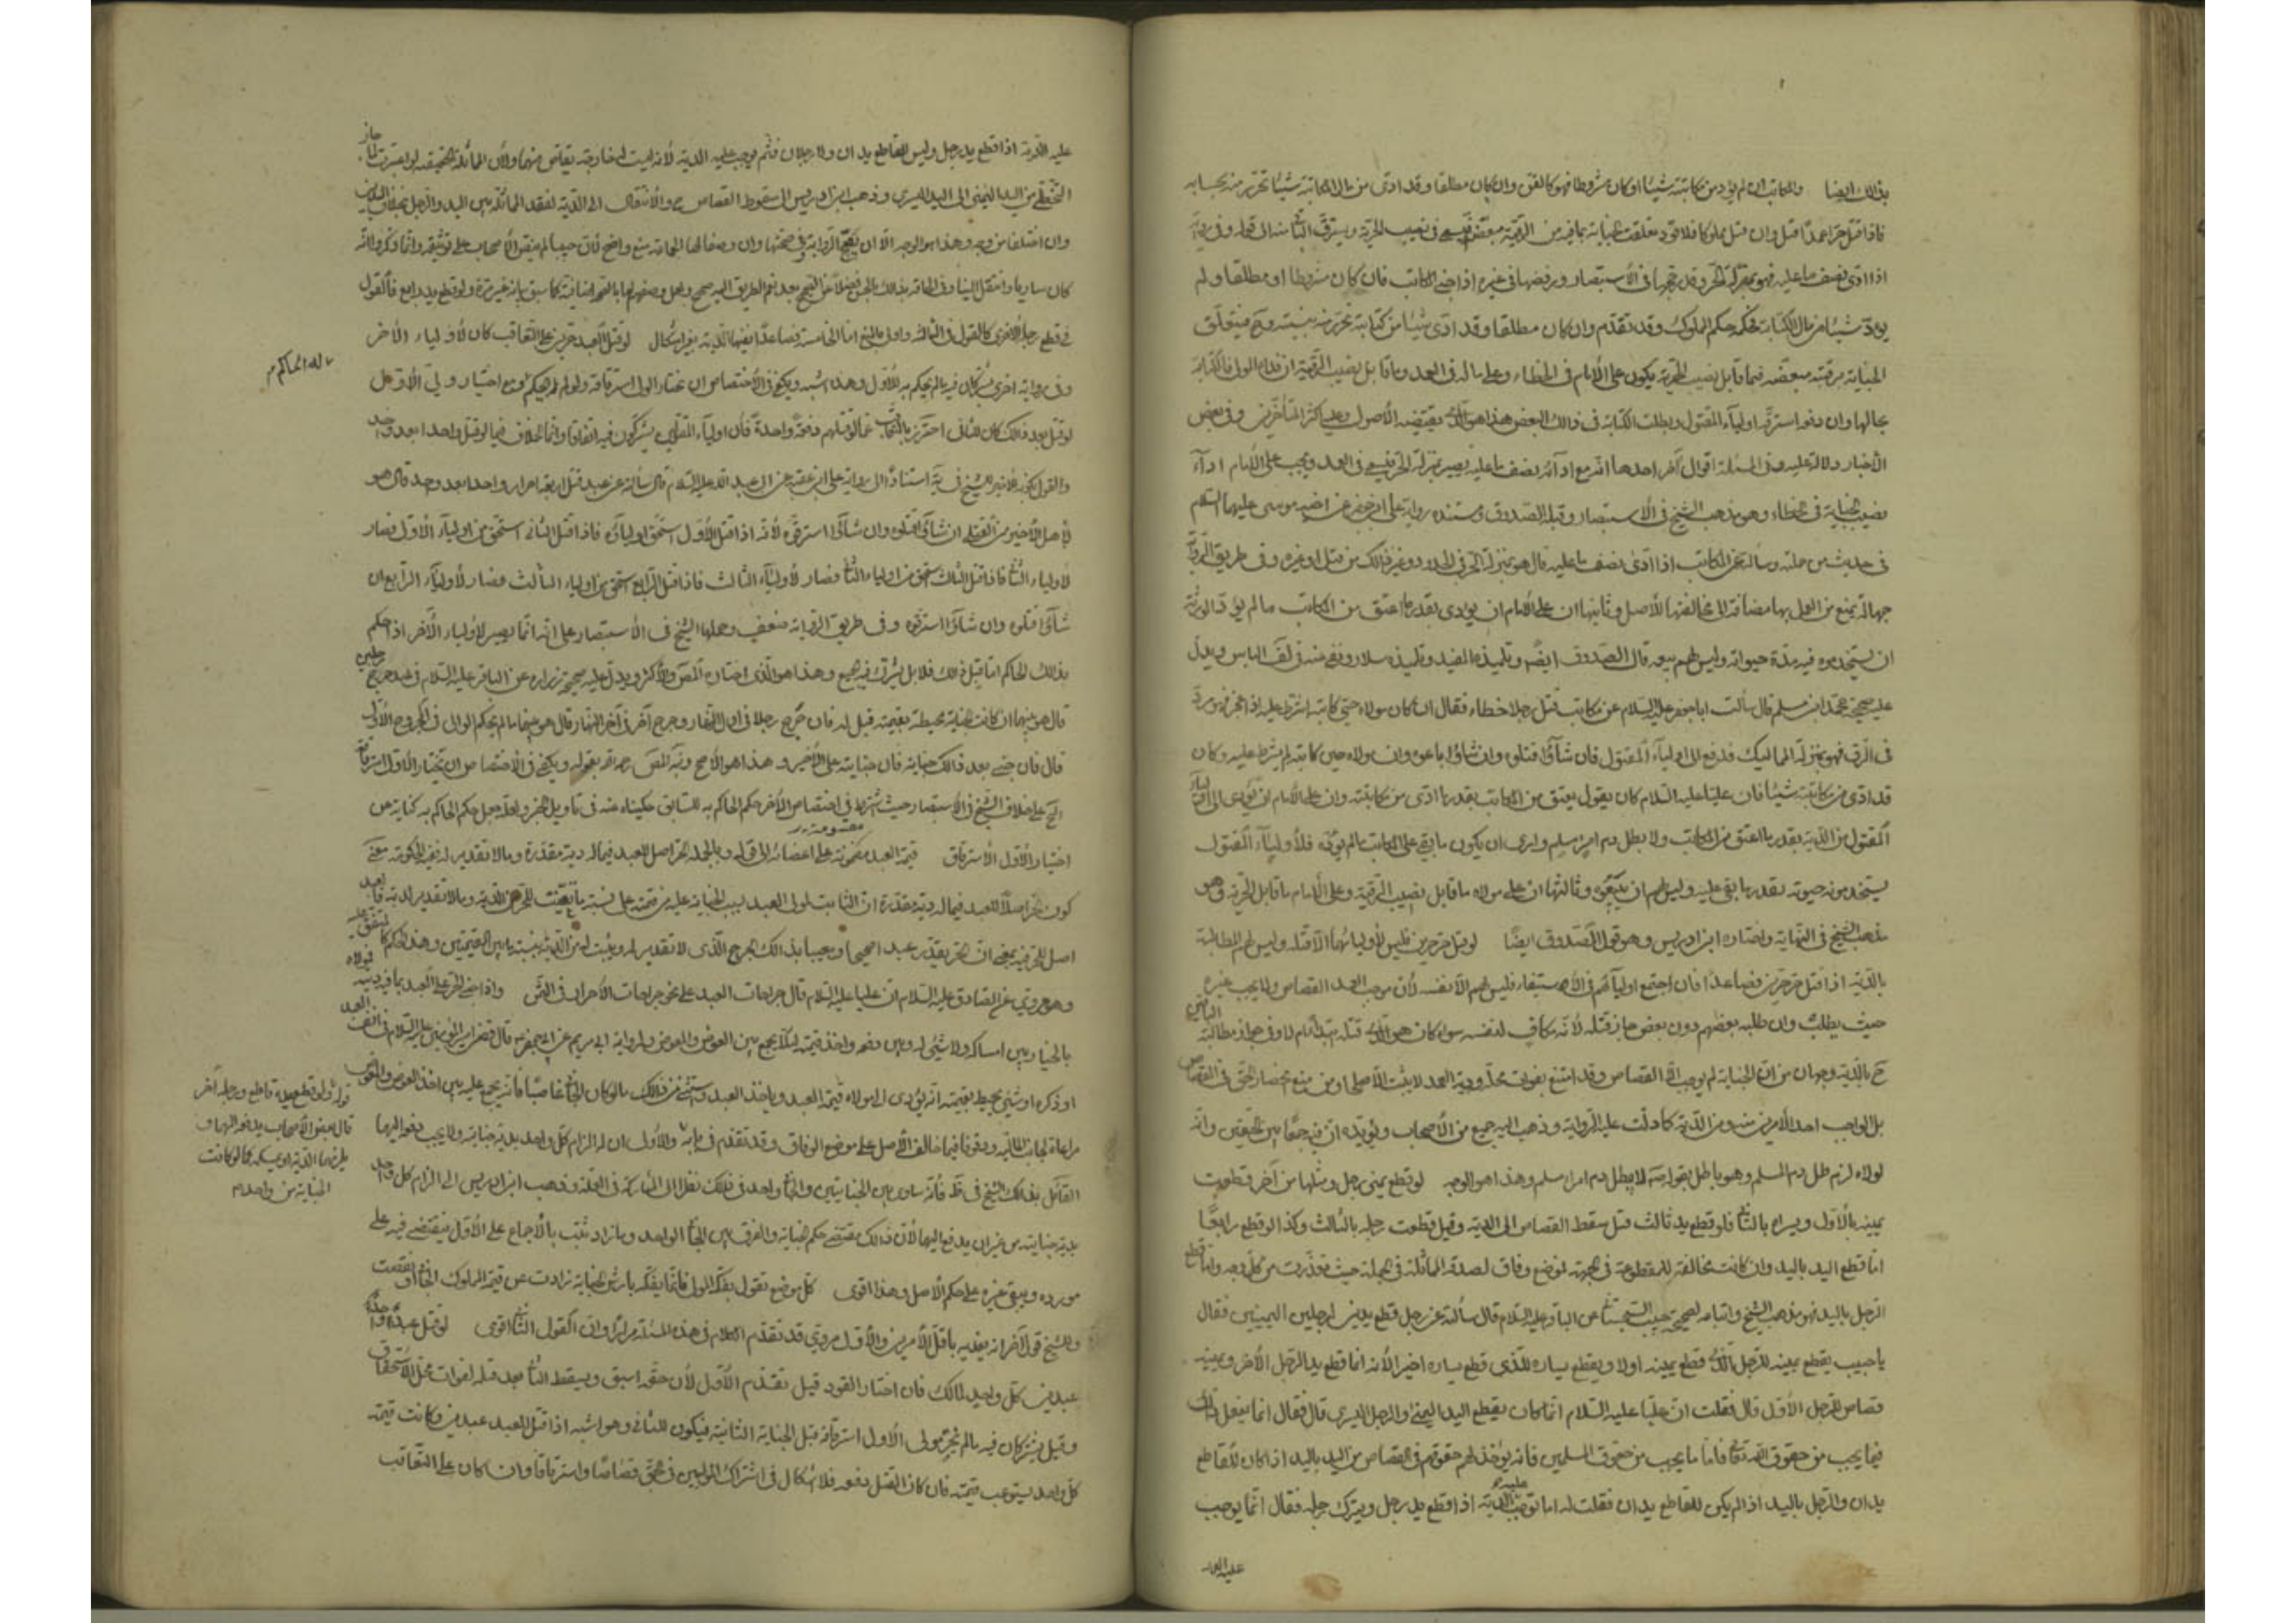 بذلك ايضا والمكاتب ان لم يؤد من مكاتبته شيئا او كان مشروطا فهو كالقن وان كان مطلقا وقد ادى من مال المكاتبة شيئا تحرر منه بحسابه
فاذا قتل حرا عمدا قتل وان قتل مملوكا فلا قود وتعلقت الجناية بما فيه من الرقية مبعضة فيسعى في نصيب الحرية ويسترق الباقى منه
اذا ادى نصف ما عليه فهو بمنزلة الحر وقد في الاستبصار ورفضها في غيره اذا جنى المكاتب فان كان مشروطا او مطلقا ولم
يؤد شيئا من مال الكتابة فحكمه حكم المملوك وقد تقدم وان كان مطلقا وقد ادى شيئا من كتابته تحرر منه بنسبته وح فيتعلق
الجناية برقبته مبعضة فما قابل نصيب الحرية يكون على الامام في الخطاء وعلى ماله في العمد وما قابل نصيب الرقية ان فداه المولى فالكتابة
بحالها وان دفعه استرقه اولياء المقتول وبطلت الكتابة في ذلك البعض هذا هو الذى يقتضيه الاصول وعليه اكثر المتأخرين وفى بعض
الاخبار دلالة عليه وفى المسئلة اقوال اخر احدها انه مع اداء نصف ما عليه يصير بمنزلة الحر فيسعى في العمد ويجب على الامام اداء
نصيب الجناية في الخطاء وهو مذهب الشيخ في الاستبصار وقبله الصدوق ومستنده رواية على بن جعفر عن اخيه موسى عليهما السلام
فى حديث من جملته وسألته عن المكاتب اذا ادى نصف ما عليه قال هو بمنزلة الحر في الحدود وغير ذلك من قتل او غيره وفى طريق الرواية
جهالة يمنع من العمل بها مضافة الى مخالفتها للاصل وثانيها ان على الامام ان يؤدى بقدر ما اعتق من المكاتب وما لم يؤد فالورثة
ان يستخدموه فيه مدة حيوته وليس لهم بيعه قاله الصدوق ايضا وتلميذه المفيد وتلميذه سلار ونفى عنه في لف الباس ويدل
عليه صحيحة محمد ابن مسلم قال سألت ابا جعفر عليه السلام عن مكاتب قتل رجلا خطاء فقال ان كان مولاه حين كاتبه اشترط عليه اذا عجز فهو رد
فى الرق فهو بمنزلة المماليك فدفع الى اولياء المقتول فان شاؤا قتلوه وان شاؤا باعوه وان مولاه حين كاتبه لم يشترط عليه وكان
قد ادى من مكاتبته شيئا فان عليا عليه السلام كان يقول يعتق من المكاتب بقدر ما ادى من مكاتبته وان على الامام ان يؤدى الى اولياء
المقتول من الدية بقدر ما اعتق من المكاتب ولا يطل دم امرء مسلم وارى ان يكون ما بقى على المكاتب مما لم يؤده فلاولياء المقتول
يستخدمونه حيوته بقدر ما بقى عليه وليس لهم ان يبيعوه وثالثها ان على مولاه ما قابل نصيب الرقية وعلى الامام ما قابل الحرية وهو
مذهب الشيخ في النهاية واختاره ابن ادريس وهو قول الصدوق ايضا لو قتل حر حرين فليس لاوليائهما الا قتله وليس لهم المطالبة
بالدية اذا قتل حر حرين فصاعدا فان اجتمع اولياؤهم في الاستيفاء فليس لهم الا نفسه لان موجب العمد القصاص ولا يجب غيره
حيث يطلب وان طلبه بعضهم دون بعض جاز قتله لانه مكاف لنفسه سواء كان هو الذى قتله مبتدأ ام لا وفى جواز مطالبة الباقين
ح بالدية وجهان من ان الجناية لم يوجب الا القصاص وقد امتنع بفوات محله ودية العمد لا يثبت الا صلحا ومن منع انحصار الحق في القصاص
بل الواجب احد الامرين منه ومن الدية كما دلت عليه الرواية وذهب اليه جميع من الاصحاب ويؤيده ان فيه جمعا بين الحقين وانه
لولاه لزم طل دم المسلم وهو باطل بقوله ص لا يبطل دم امرء مسلم وهذا هو الوجه لو قطع يمنى رجل ومثلها من آخر قطعت
يمينه بالاول ويسراه بالثانى فلو قطع يد ثالث قيل سقط القصاص الى الدية وقيل قطعت رجله بالثالث وكذا لو قطع رابعا
اما قطع اليد باليد وان كانت مخالفة للمقطوعة في الجهة فموضع وفاق لصدق المماثلة في الجملة حيث تعذرت من كل وجه واما قطع
الرجل باليد فهو مذهب الشيخ واتباعه لصحيحة حبيب السجستانى عن الباقر عليه السلام قال سألته عن رجل قطع يدين لرجلين اليمينين فقال
يا حبيب يقطع يمينه للرجل الذى قطع يمينه اولا ويقطع يساره للذى قطع يساره اخيرا لانه انما قطع يد الرجل الاخر ويمينه
قصاص للرجل الاول قال فقلت ان عليا عليه السلام انما كان يقطع اليد اليمنى والرجل اليسرى قال فقال انما يفعل ذلك
فيما يجب من حقوق الله تعالى فاما ما يجب من حقوق المسلمين فانه يؤخذ لهم حقوقهم في القصاص من اليد باليد اذا كان للقاطع
يدان والرجل باليد اذا لم يكن للقاطع يدان فقلت له اما توجب عليه الدية اذا قطع يد رجل ويترك رجله فقال انما يوجب
عليه الدية
عليه الدية اذا قطع يد رجل وليس للقاطع يدان ولا رجلان فثم يوجب عليه الدية لانه ليست له جارحة يقاص منها ولان المماثلة الحقيقية لو اعتبرت لما جاز
التخطى من اليد اليمنى الى اليد اليسرى وذهب ابن ادريس الى سقوط القصاص ح والانتقال الى الدية لفقد المماثلة بين اليد والرجل بخلاف اليدين
وان اختلفا من وجه وهذا هو الوجه الا ان يصح الرواية وفى صحتها وان وصفها بها الجماعة منع واضح فان حبيبا لم ينص الاصحاب على توثيقه وانما ذكروا انه
كان شاريا وانتقل الينا وفى الحاقه بذلك بالحسن فضلا عن الصحيح بعد نعم الطريق اليه صحيح ولعل وصفهم لها بالصحة اضافية كما سبق بيانه غير مرة ولو قطع يد رابع فالقول
في قطع رجله الاخرى كالقول في الثالثة واولى بالمنع اما الخامسة فصاعدا فيها الدية بغير اشكال لو قتل العبد حرين على التعاقب كان لاولياء الاخر
وفى رواية اخرى يشتركان فيه ما لم يحكم به للاول وهذا اشبه ويكفى في الاختصاص ان يختار الولى استرقاقه ولو لم يحكم له الحاكم ومع اختيار ولى الاول
لو قتل بعد ذلك كان للثانى احترز بالتعاقب عما لو قتلهم دفعة واحدة فان اولياء المقتولين يشتركون فيه اتفاقا وانما الخلاف فيما لو قتل واحدا بعد واحد
والقول بكونه للاخير للشيخ في ية استنادا الى رواية على بن عقبة عن ابى عبد الله عليه السلام قال سألته عن عبد قتل اربعة احرار واحدا بعد واحد قال هو
لاهل الاخير من القتلى ان شاؤا قتلوه وان شاؤا استرقوه لانه اذا قتل الاول استحق اولياؤه فاذا قتل الثانى استحق من اولياء الاول فصار
لاولياء الثانى فاذا قتل الثالث استحق من اولياء الثانى فصار لاولياء الثالث فاذا قتل الرابع استحق من اولياء الثالث فصار لاولياء الرابع ان
شاؤا قتلوه وان شاؤا استرقوه وفى طريق الرواية ضعف وحملها الشيخ في الاستبصار على انه انما يصير لاولياء الاخر اذا حكم
بذلك الحاكم اما قبل ذلك فلا بل يشترك فيه الجميع وهذا هو الذى اختاره المصنف والاكثر ويدل عليه صحيحة زرارة عن الباقر عليه السلام في عبد جرح رجلين
قال هو بينهما ان كانت الجناية محيطة بقيمته قيل له فان جرح رجلا في اول النهار وجرح آخر في آخر النهار قال هو بينهما ما لم يحكم الوالى في المجروح الاول
قال فان جنى بعد ذلك جناية فان جنايته على الاخير وهذا هو الاصح ونبه المصنف رحمه الله بقوله ويكفى في الاختصاص ان يختار الاول استرقاقه
الخ على خلاف الشيخ في الاستبصار حيث شرط في اختصاص الاخر حكم الحاكم به للسابق حكيناه عنه في تاويل الخبر ولعله جعل حكم الحاكم به كناية عن
اختيار الاول الاسترقاق قيمة العبد مقسومة على اعضائه كما في الحر وبالجملة الحر اصل للعبد فيما له دية مقدرة وما لا تقدير له فيه الحكومة معنى
كون الحر اصلا للعبد فيما له دية مقدرة ان الثابت لمولى العبد بسبب الجناية عليه من قيمته على نسبة ما يثبت للحر من الدية وما لا تقدير لديته فالعبد
اصل للحر فيه بمعنى ان الحر يقدر عبدا صحيحا ومعيبا بذلك الجرح الذى لا تقدير له ويثبت له من الدية بنسبة ما بين القيمتين وهذا الحكم كالمتفق عليه
وهو مروى عن الصادق عليه السلام ان عليا عليه السلام قال جراحات العبد على نحو جراحات الاحرار في الثمن واذا جنى الحر على العبد بما فيه ديته فمولاه
بالخيار بين امساكه ولا شىء له وبين دفعه واخذ قيمته لئلا يجمع بين العوض والمعوض ولرواية ابى مريم عن ابى جعفر ع قال قضى امير المؤمنين عليه السلام في انف العبد
او ذكره او شىء يحيط بقيمته انه يؤدى الى مولاه قيمة العبد وياخذ العبد واستثنى من ذلك ما لو كان الجانى غاصبا فانه يجمع عليه بين اخذ العوض والمعوض
مراعاة لجانب المالية ووقوفا فيما خالف الاصل على موضع الوفاق وقد تقدم في بابه والاول ان له الزام كل واحد بدية جنايته ولا يجب دفعه اليهما
القائل بذلك الشيخ في ط فانه ساوى بين الجنايتين والجانى واحد في ذلك نظرا الى المشاركة في العلة وذهب ابن ادريس الى الزام كل واحد
بدية جنايته من غير ان يدفع اليهما لان ذلك مقتضى حكم الجناية والفرق بين الجانى الواحد وما زاد ثبت بالاجماع على الاول فيقتصر فيه على
مورده ويبقى غيره على حكم الاصل وهذا اقوى كل موضع نقول يفكه المولى فانما يفكه بارش الجناية زادت عن قيمة المملوك الجانى او نقصت
وللشيخ قول آخر انه يفديه باقل الامرين والاول مروى قد تقدم الكلام في هذه المسئلة مرارا وان القول الثانى اقوى لو قتل عبد واحد
عبدين كل واحد لمالك فان اختار القود قيل يقدم الاول لان حقه اسبق ويسقط الثانى بعد قتله لفوات محل الاستحقاق
وقيل يشتركان فيه ما لم يختر مولى الاول استرقاقه قبل الجناية الثانية فيكون للثانى وهو اشبه اذا قتل العبد عبدين وكانت قيمة
كل واحد يستوعب قيمته فان كان القتل دفعة فلا اشكال في اشتراك الموليين في الحق قصاصا واسترقاقا وان كان على التعاقب
له الحاكم م
قوله ولو قطع يده قاطع ورجله آخر
قال بعض الاصحاب يدفعه اليهما و
يلزمهما الدية او يمسكه كما لو كانت
الجناية من واحد م